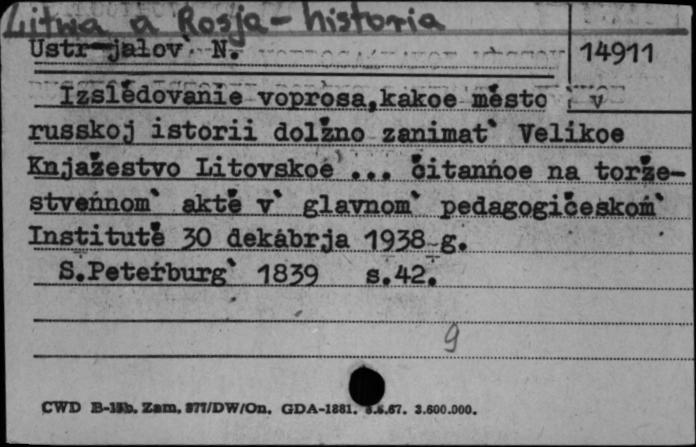 Litwa a Rosja - historia
Ustr-jalov` N. 14911
Izslědovanie voprosa,kakoe město v
russkoj istorii dolžno zanimat` Velikoe
Knjažestvo Litovskoe ... čitannoe na torže-
stvennom` aktě v` glavnom` pedagogičeskom`
Institutě 30 dekabrja 1938 g.
S.Peterburg` 1839 s.42.
9
CWD B-15b. Zam. 877/DW/On. GDA-1881. 67. 3.600.000.